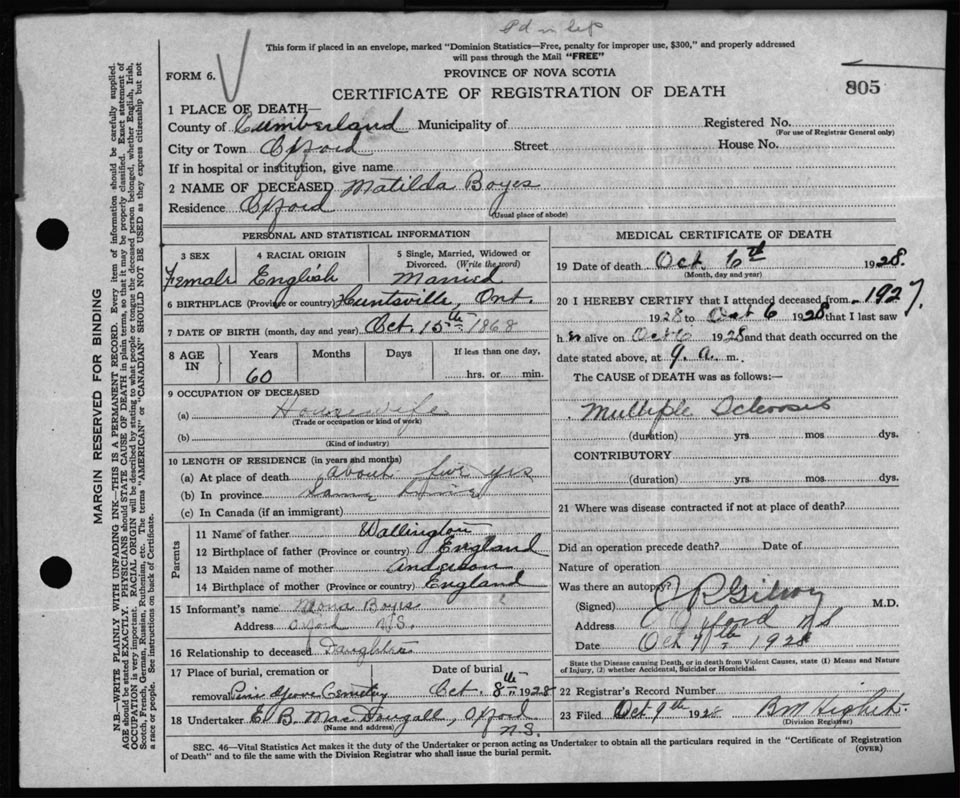 This form if placed in an envelope, marked "Dominion Statistics—Free, penalty for improper use, $300," and properly addressed
will pass through the Mail "FREE"
FORM 6.
PROVINCE OF NOVA SCOTIA
CERTIFICATE OF REGISTRATION OF DEATH
805
1 PLACE OF DEATH—
County of Cumberland Municipality of Registered No.
(For use of Registrar General only)
City or Town Oxford Street House No.
If in hospital or institution, give name
2 NAME OF DECEASED Matilda Boyes
Residence Oxford
(Usual place of abode)
PERSONAL AND STATISTICAL INFORMATION
3 SEX 4 RACIAL ORIGIN 5 Single, Married, Widowed or
Divorced. (Write the word)
Female English Married
6 BIRTHPLACE (Province or country) Huntsville, Ont.
7 DATE OF BIRTH (month, day and year) Oct. 15th 1868
8 AGE IN Years Months Days If less than one day,
60 hrs. or min.
9 OCCUPATION OF DECEASED
(a) Housewife
(Trade or occupation or kind of work)
(b)
(Kind of industry)
10 LENGTH OF RESIDENCE (in years and months)
(a) At place of death about five yrs
(b) In province Same time
(c) In Canada (if an immigrant)
Parents
11 Name of father Wallington
12 Birthplace of father (Province or country) England
13 Maiden name of mother Anderson
14 Birthplace of mother (Province or country) England
15 Informant's name Mona Boyes
Address Oxford N.S.
16 Relationship to deceased Daughter
17 Place of burial, cremation or Date of burial
removal Pine Grove Cemetery Oct. 8th 1928
18 Undertaker E. B. MacDougall, Oxford
(Name and address) N.S.
MEDICAL CERTIFICATE OF DEATH
19 Date of death Oct. 6th 1928.
(Month, day and year)
20 I HEREBY CERTIFY that I attended deceased from 1927,
1928 to Oct 6 1928 that I last saw
h er alive on Oct 6 1928 and that death occurred on the
date stated above, at 9. a. m.
The CAUSE of DEATH was as follows:—
Multiple Sclerosis
(duration) yrs. mos dys.
CONTRIBUTORY
(duration) yrs. mos. dys.
21 Where was disease contracted if not at place of death?
Did an operation precede death? Date of
Nature of operation
Was there an autopsy?
(Signed) J P Gilroy M.D.
Address Oxford NS
Date Oct 7th 1928
State the Disease causing Death, or in death from Violent Causes, state (1) Means and Nature
of Injury, (2) whether Accidental, Suicidal or Homicidal.
22 Registrar's Record Number
23 Filed Oct 9th 1928 B M
(Division Registrar)
SEC. 46—Vital Statistics Act makes it the duty of the Undertaker or person acting as Undertaker to obtain all the particulars required in the "Certificate of Registration
of Death" and to file the same with the Division Registrar who shall issue the burial permit.
(OVER)
MARGIN RESERVED FOR BINDING
N.B.—WRITE PLAINLY WITH UNFADING INK—THIS IS A PERMANENT RECORD. Every item of information should be carefully supplied.
AGE should be stated EXACTLY. PHYSICIANS should STATE CAUSE OF DEATH in plain terms, so that it may be properly classified. Exact statement of
OCCUPATION is very important. RACIAL ORIGIN will be described by stating to what people or tongue the deceased person belonged, whether English, Irish,
Scotch, French, German, Russian, Ruthenian, etc. The terms "AMERICAN" or "CANADIAN" SHOULD NOT BE USED as they express citizenship but not
a race or people. See instructions on back of Certificate.